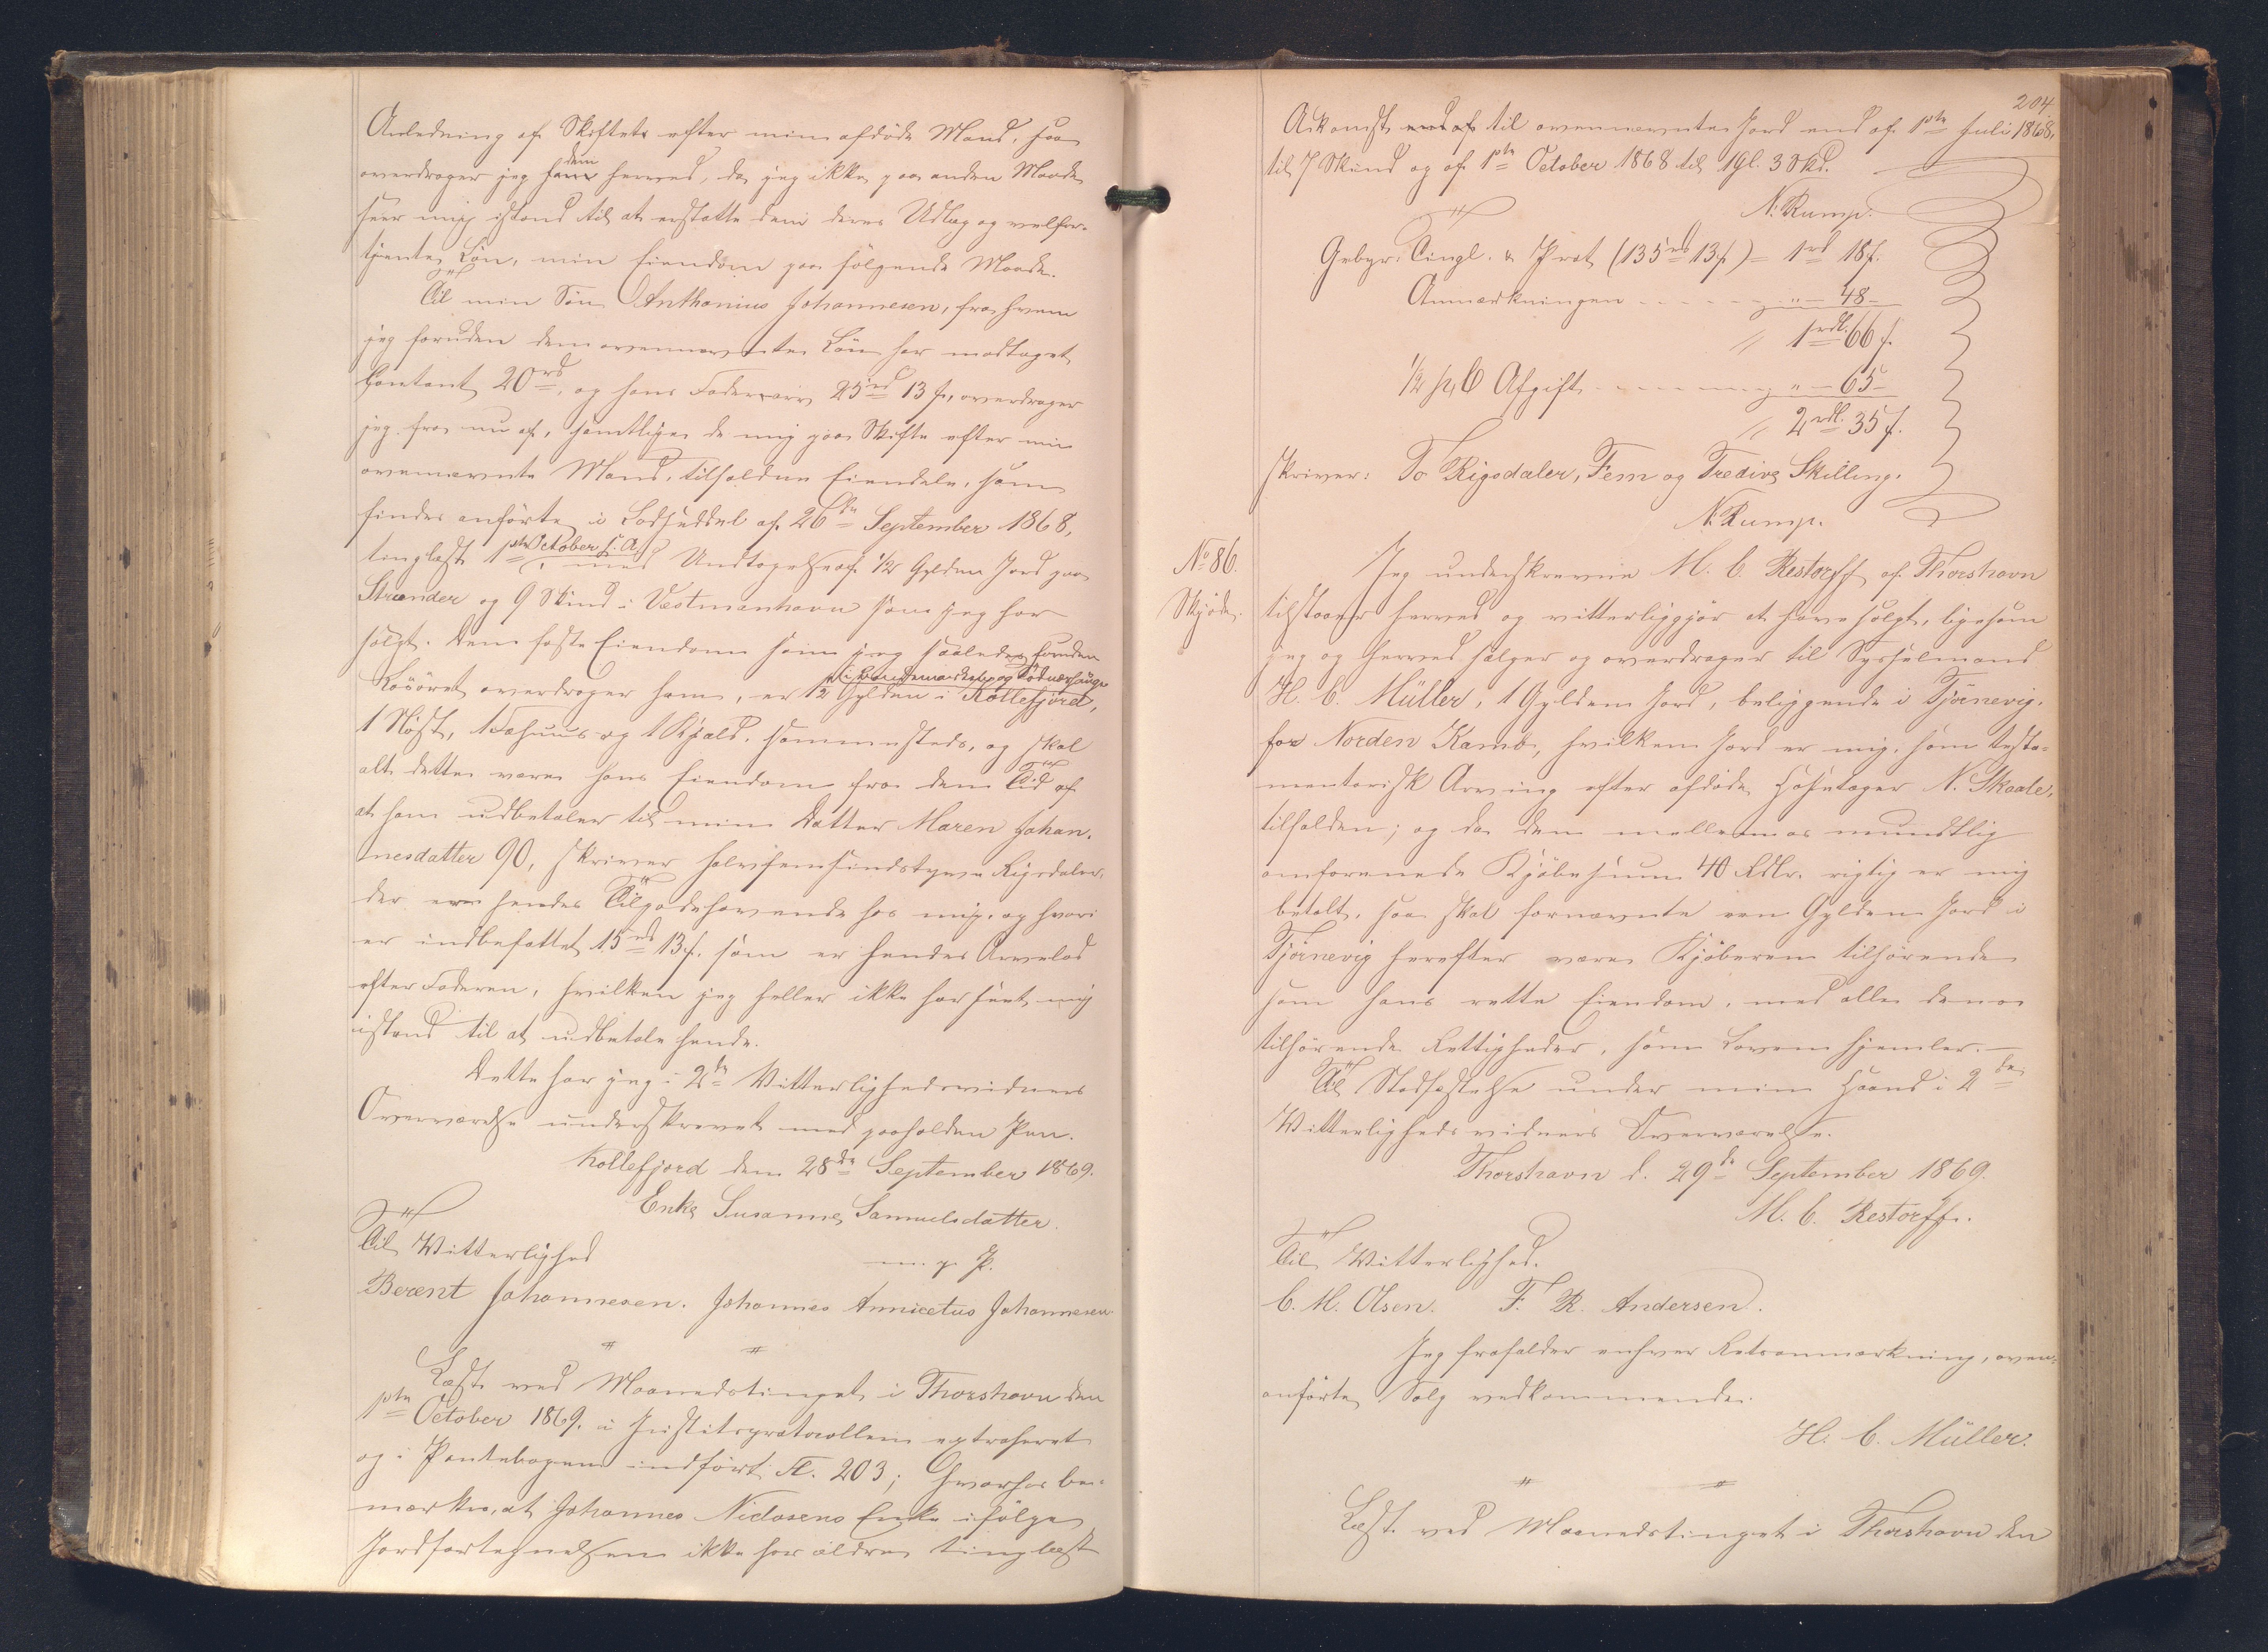 Anledning af Skiftet efter min afdöde Mand, saa
overdrager jeg dem herved, da jeg ikke paa anden Maade
seer mig istand til at erstatte dem deres Udlæg og velfor-
tjente Lön, min Eiendom paa følgende Maade.
Til min Sön Anthonius Johannesen, fra hvem
jeg foruden den ovennævnte Lön har modtaget
Contant 20 rd, og hans Fadersarv 25 rd 13 s, overdrager
jeg fra nu af, samtlige de mig paa Skifte efter min
ovennævnte Mand, tilfaldne Eiendele, som
findes anförte i Lodseddel af 26de September 1868,
tinglæst 1ste October s. A. med Undtagelse af 1/2 Gylden Jord paa
Strænder og 9 Skind i Vestmanhavn som jeg har
solgt. Den faste Eiendom som jeg saaledes foruden
Løsöret overdrager ham, er 1/2 Gylden i Kollefjord,
1 Nöst, 1 Fæhuus og 1 Kjald. sammesteds, og skal
alt dette være hans Eiendom fra den Tid af
at han udbetaler til min Datter Maren Johan-
nesdatter 90, skriver halvfemsindstyve Rigsdaler,
der er hendes Tilgodehavende hos mig, og hvori
er indbefattet 15 rd 13 s. som er hendes Arvelod
efter Faderen, hvilken jeg heller ikke har seet mig
istand til at udbetale hende.
Dette har jeg i 2de Vitterlighedsvidners
Overværelse underskrevet med paaholden Pen.
Kollefjord den 28de September 1869.
Enke Susanne Samuelsdatter.
Til Vitterlighed
m. p. P.
Berent Johannesen. Johannes Annicetus Johannesen.
Læst ved Maanedstinget i Thorshavn den
1ste October 1869. i Justitsprotocollen extraheret
og i Pantebogen indfört fl. 203; hvorhos be-
mærkes, at Johannes Niclasens Enke ifölge
Jordfortegnelsen ikke har ældre tinglæst
204.
Adkomst til ovennævnte Jord end af 1ste Juli 1868,
til 7 Skind og af 1ste October 1868 til 1 Gl. 3 Skd.
N. Rump.
Gebyr: Tingl. & Prot (135 rd 13 s) = 1 rd 18 s.
Anmærkningen - - - - " - 48 -
1 rdl. 66 s.
1/2 p C Afgift - - - - " - 65 -
2 rdl. 35 s.
skriver: To Rigsdaler, Fem og Tredive Skilling.
N. Rump.
No 86.
Skjöde.
Jeg underskrevne M. C. Restorff af Thorshavn
tilstaaer herved og vitterliggjör at have solgt, ligesom
jeg og herved sælger og overdrager til Sysselmand
H. C. Müller, 1 Gylden Jord, beliggende i Tjörnevig
for Norden Kamb, hvilken Jord er mig, som testa-
mentarisk Arving efter afdöde Huusetager N. Skaale,
tilfalden; og da den mellem os mundtlig
omforenede Kjöbesum 40 Rdlr. rigtig er mig
betalt, saa skal fornævnte een Gylden Jord i
Tjörnevig herefter være Kjöberen tilhörende
som hans rette Eiendom, med alle denne
tilhörende Rettigheder, som Loven hjemler.
Til Stadfæstelse under min Haand i 2de
Vitterlighedsvidners Overværelse.
Thorshavn d. 29de September 1869.
M. C. Restorff.
Til Vitterlighed.
C. M. Olsen. F. R. Andersen.
Jeg frafalder enhver Retsanmærkning, oven-
anförte Salg vedkommende.
H. C. Müller.
Læst ved Maanedstinget i Thorshavn den